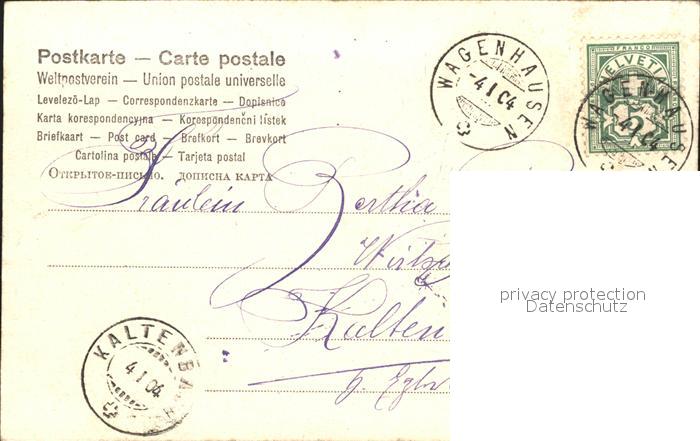 Postkarte — Carte postale
Weltpostverein — Union postale universelle
Levelező-Lap — Correspondenzkarte — Dopisnice
Karta korespondencyjna — Korespondenční listek
Briefkaart — Post card — Brefkort — Brevkort
Cartolina postale — Tarjeta postal
Открытое-письмо. дописна карта
WAGENHAUSEN
-4.I.04
FRANCO
HELVETIA
WAGENHAUSEN
-4.I.04
Fräulein Bertha
Kalten
privacy protection
Datenschutz
KALTENBACH
4.I.04